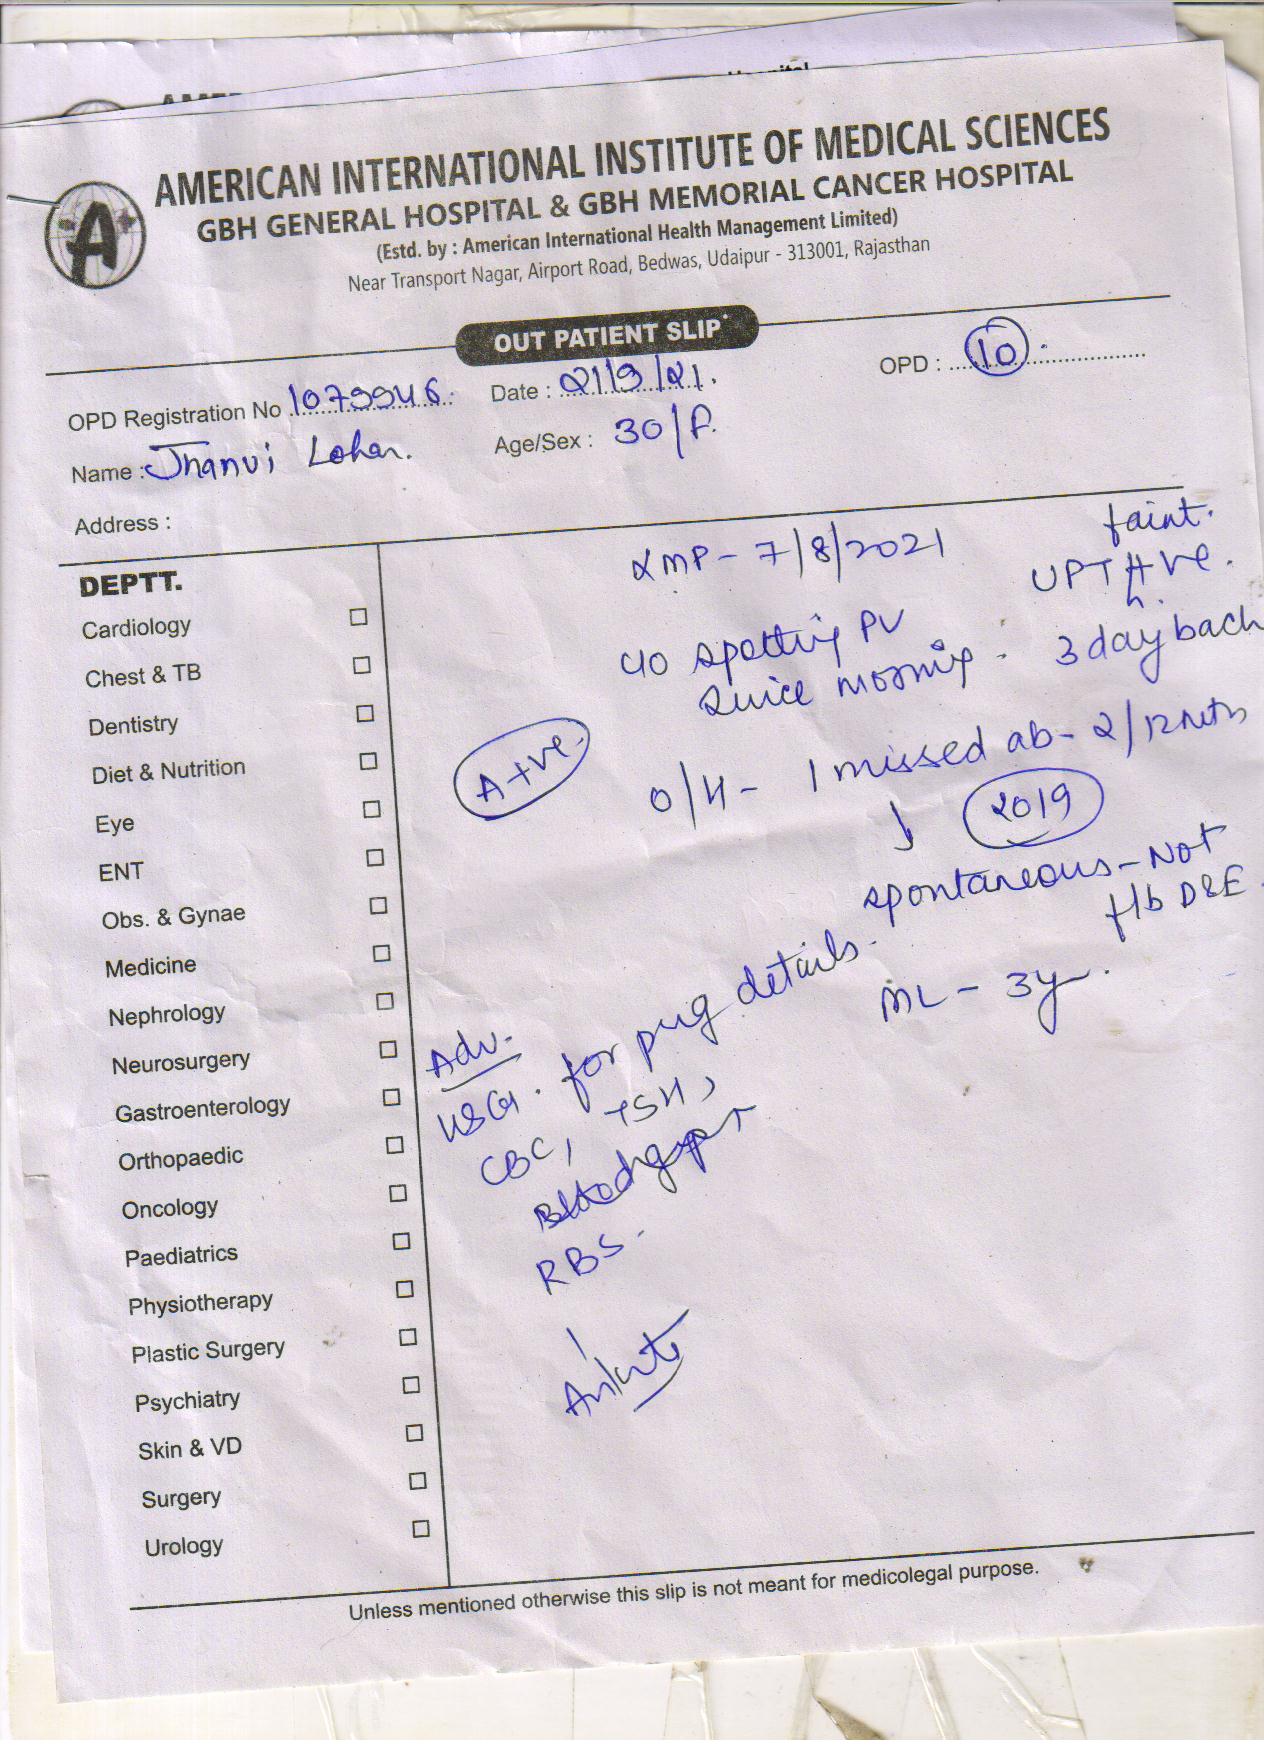 AMERICAN INTERNATIONAL INSTITUTE OF MEDICAL SCIENCES
GBH GENERAL HOSPITAL & GBH MEMORIAL CANCER HOSPITAL
(Estd. by : American International Health Management Limited)
Near Transport Nagar, Airport Road, Bedwas, Udaipur - 313001, Rajasthan
OUT PATIENT SLIP
OPD : 10
OPD Registration No 1079946 Date : 21/9/21.
Name : Jhanvi Lohar. Age/Sex : 30/F.
Address :
LMP - 7/8/2021
faint.
UPT +ve.
3 day back
c/o spotting PV
since morning.
A+ve.
O/H - 1 missed ab - 2/12 mths
2019
spontaneous - Not
f/b D&E.
ML - 3y
Adv.
USG. for preg details.
CBC, TSH,
Blood group
RBS.
DEPTT.
Cardiology
Chest & TB
Dentistry
Diet & Nutrition
Eye
ENT
Obs. & Gynae
Medicine
Nephrology
Neurosurgery
Gastroenterology
Orthopaedic
Oncology
Paediatrics
Physiotherapy
Plastic Surgery
Psychiatry
Skin & VD
Surgery
Urology
Unless mentioned otherwise this slip is not meant for medicolegal purpose.